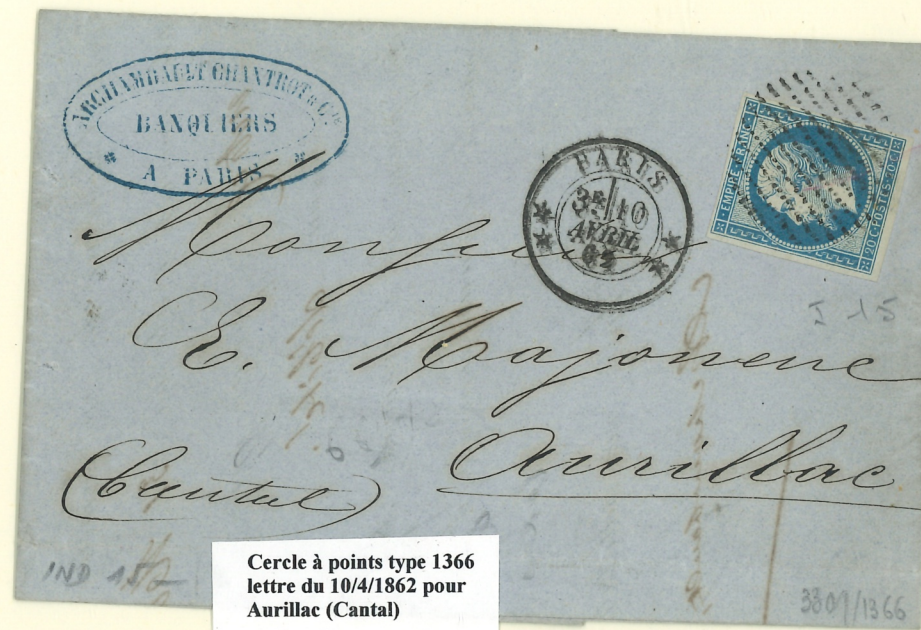 ARCHAMBAULT CHANTROT & Cie
BANQUIERS
A PARIS
PARIS
3E 10
AVRIL
62
EMPIRE FRANC
20 C POSTES 20 C
I 15
Monsieur
E. Majoneuc
Aurillac
(Cantal)
IND 15
Cercle à points type 1366
lettre du 10/4/1862 pour
Aurillac (Cantal)
3309/1366